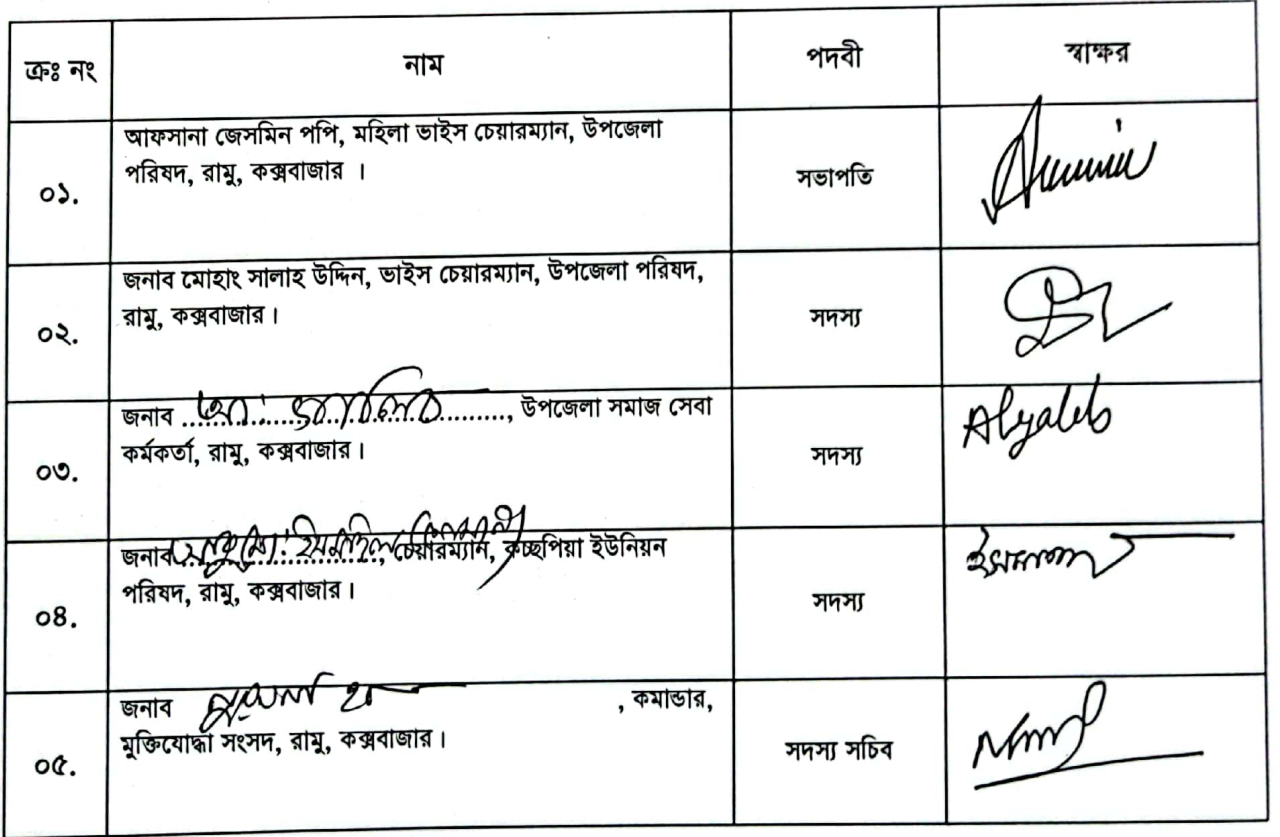 ক্রঃ নং নাম পদবী স্বাক্ষর
আফসানা জেসমিন পপি, মহিলা ভাইস চেয়ারম্যান, উপজেলা
পরিষদ, রামু, কক্সবাজার ।
০১. সভাপতি
জনাব মোহাং সালাহ উদ্দিন, ভাইস চেয়ারম্যান, উপজেলা পরিষদ,
রামু, কক্সবাজার।
০২. সদস্য
জনাব ...................................., উপজেলা সমাজ সেবা
কর্মকর্তা, রামু, কক্সবাজার।
০৩. সদস্য
জনাব........................, চেয়ারম্যান, কচ্ছপিয়া ইউনিয়ন
পরিষদ, রামু, কক্সবাজার।
০৪. সদস্য
জনাব , কমান্ডার,
মুক্তিযোদ্ধা সংসদ, রামু, কক্সবাজার।
০৫. সদস্য সচিব